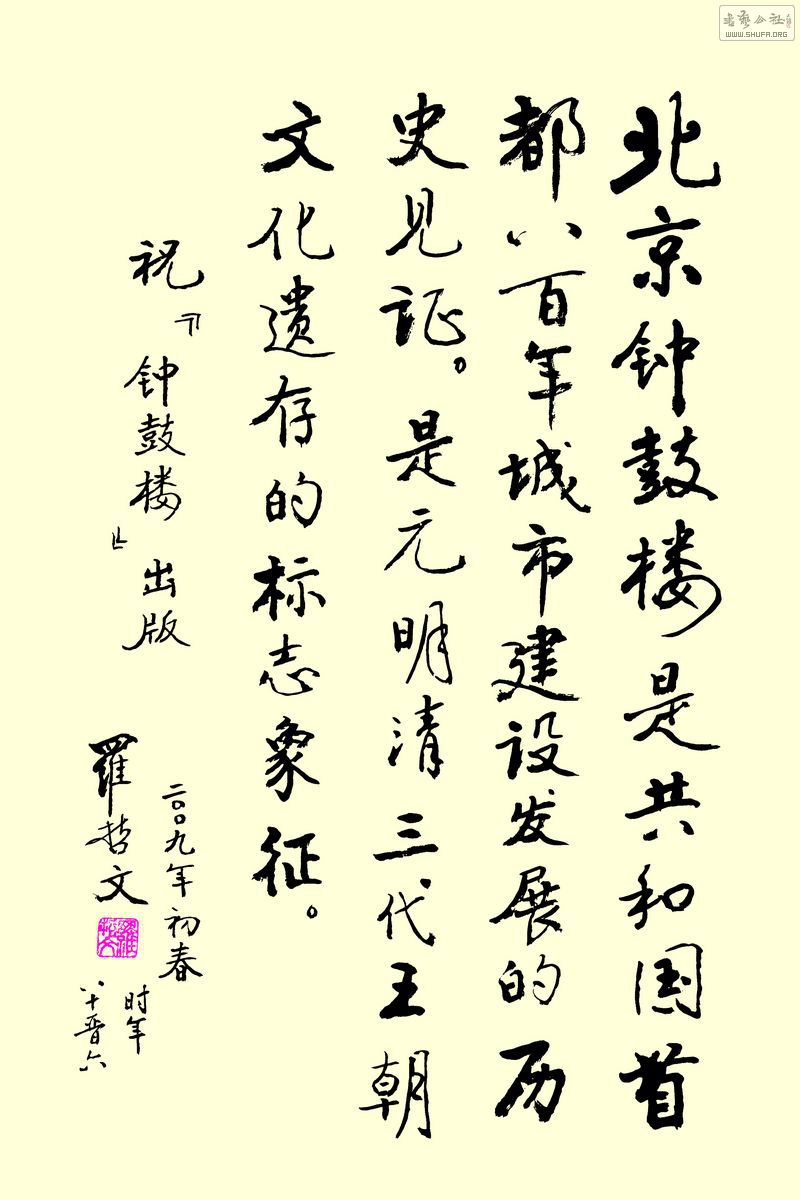 北京钟鼓楼是共和国首
都八百年城市建设发展的历
史见证。是元明清三代王朝
文化遗存的标志象征。
祝『钟鼓楼』出版
二〇〇九年初春
羅哲文
时年
八十晋六
羅哲文
书艺公社
WWW.SHUFA.ORG